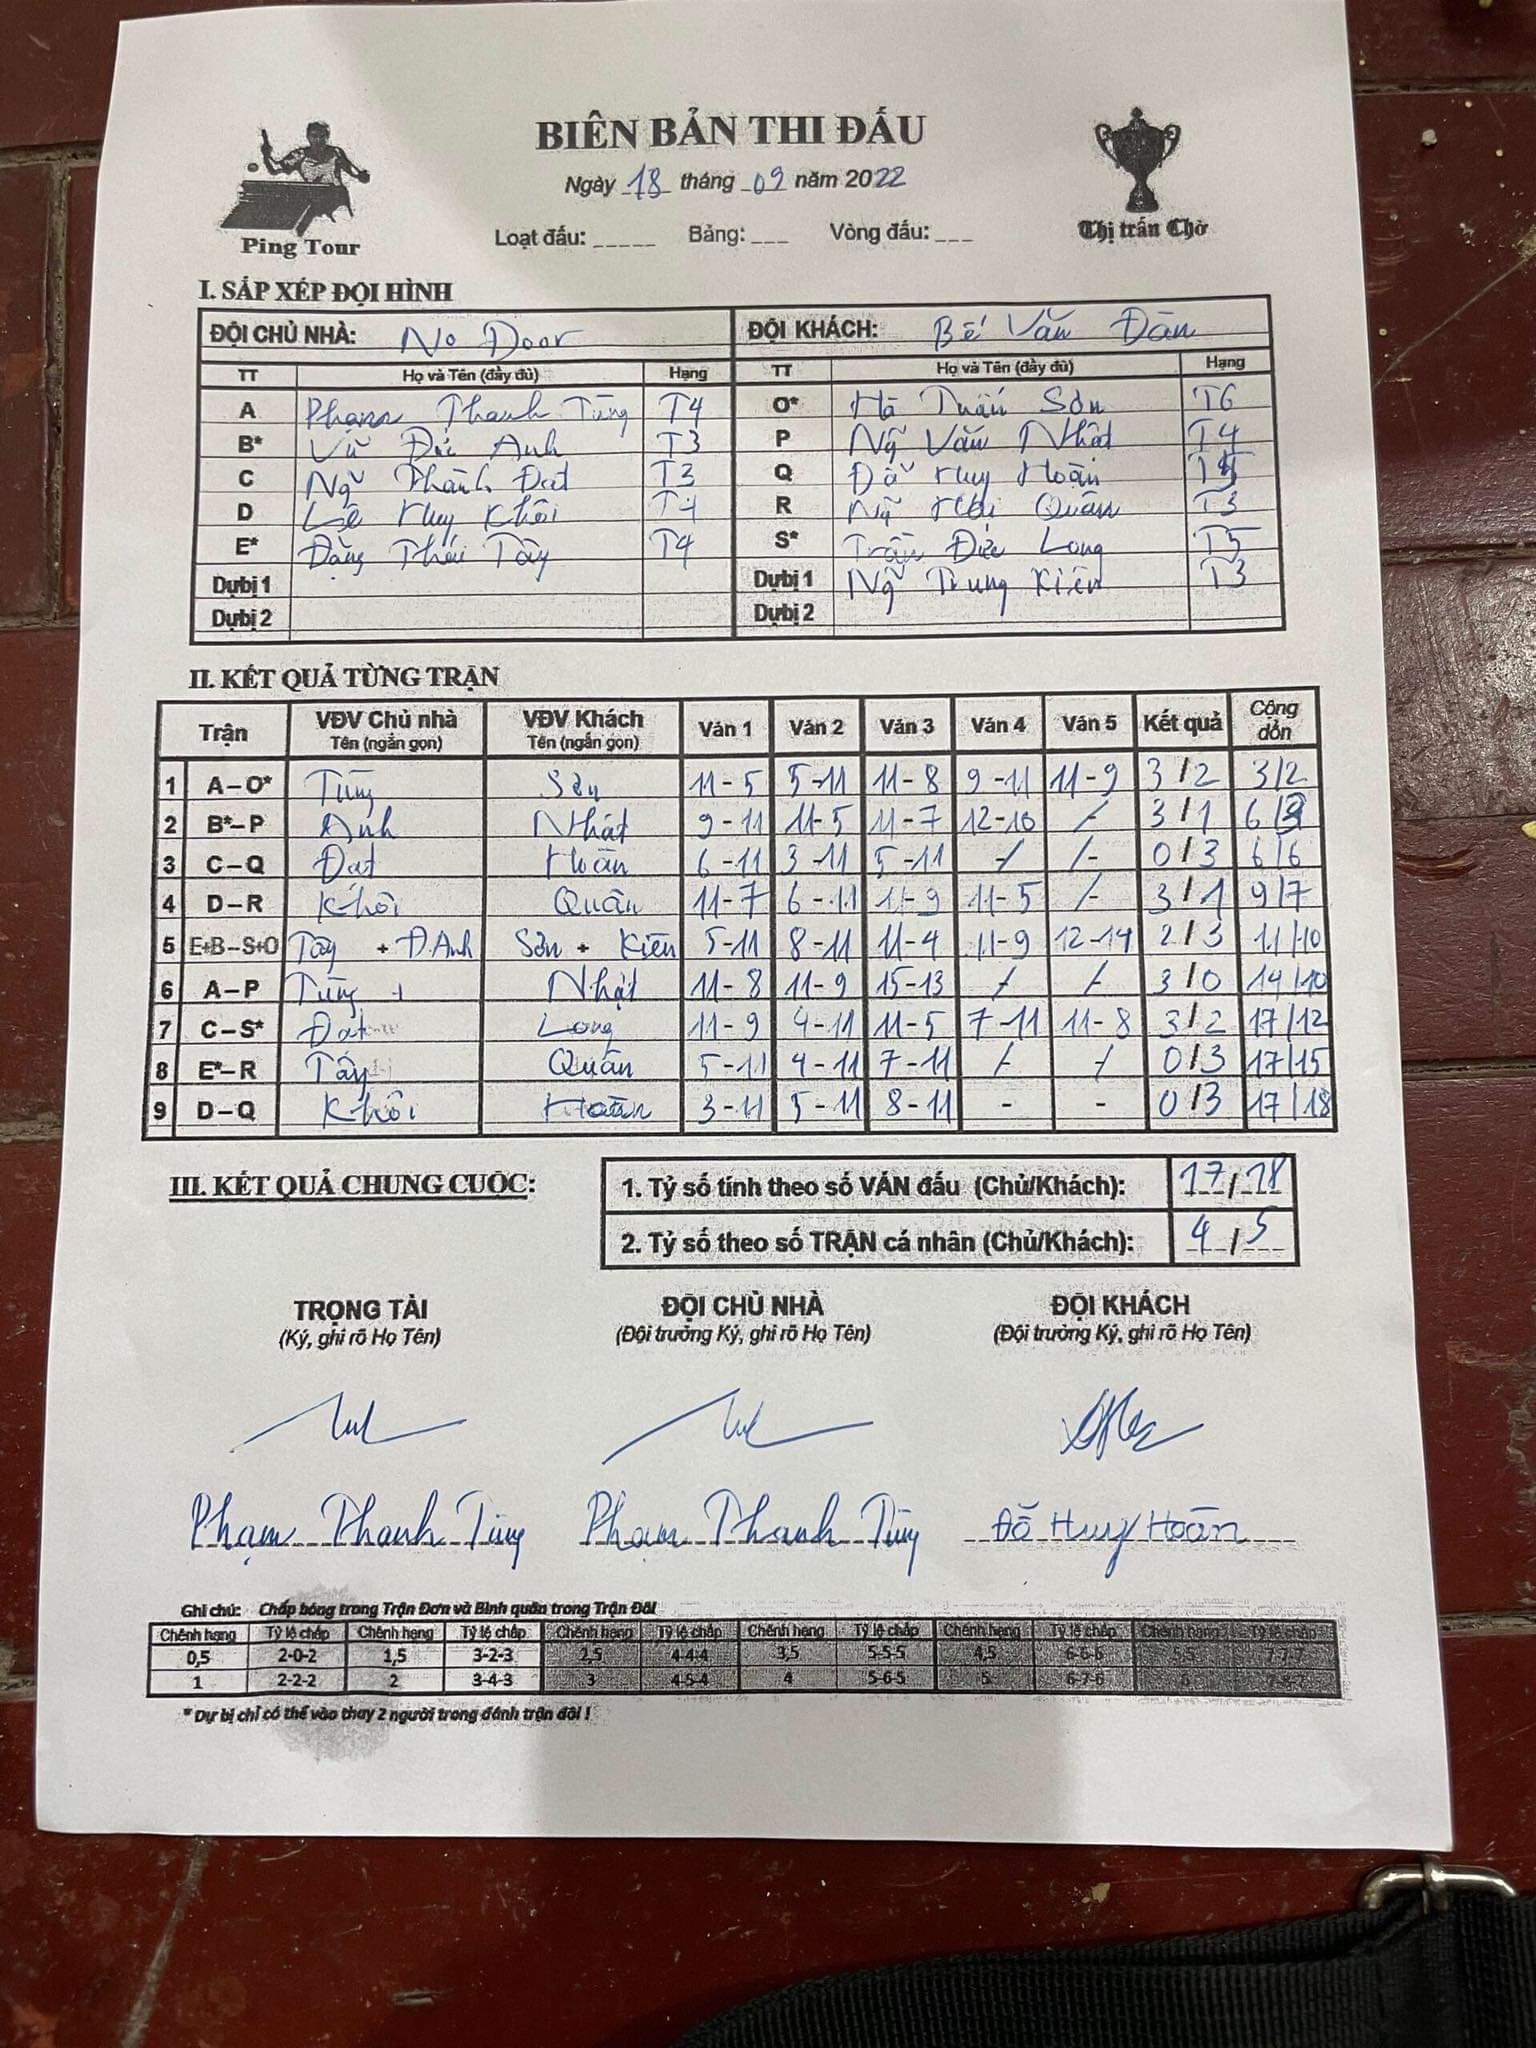 BIÊN BẢN THI ĐẤU
Ngày 18 tháng 09 năm 2022
Ping Tour
Thị trấn Chờ
Loạt đấu: _____ Bảng: ___ Vòng đấu: ___
I. SẮP XẾP ĐỘI HÌNH
ĐỘI CHỦ NHÀ: No Door ĐỘI KHÁCH: Bế Văn Đàn
TT Họ và Tên (đầy đủ) Hạng TT Họ và Tên (đầy đủ) Hạng
A Phạm Thanh Tùng T4 O* Hà Tuấn Sơn T6
B* Vũ Đức Anh T3 P Ng Văn Nhật T4
C Ng Thành Đạt T3 Q Đỗ Huy Hoàn
D Lê Huy Khôi T4 R Ng Hải Quân T3
E* Đặng Thái Tây T4 S* Trần Đức Long T5
Dự bị 1 Dự bị 1 Ng Trung Kiên T3
Dự bị 2 Dự bị 2
II. KẾT QUẢ TỪNG TRẬN
Trận VĐV Chủ nhà Tên (ngắn gọn) VĐV Khách Tên (ngắn gọn) Ván 1 Ván 2 Ván 3 Ván 4 Ván 5 Kết quả Cộng dồn
1 A – O* Tùng Sơn 11-5 5-11 11-8 9-11 11-9 3/2 3/2
2 B* – P Anh Nhật 9-11 11-5 11-7 12-10 / 3/1 6/3
3 C – Q Đạt Hoàn 6-11 3-11 5-11 / / 0/3 6/6
4 D – R Khôi Quân 11-7 6-11 11-9 11-5 / 3/1 9/7
5 E+B – S+O Tây + Đ.Anh Sơn + Kiên 5-11 8-11 11-4 11-9 12-14 2/3 11/10
6 A – P Tùng Nhật 11-8 11-9 15-13 / / 3/0 14/10
7 C – S* Đạt Long 11-9 4-11 11-5 7-11 11-8 3/2 17/12
8 E* – R Tây Quân 5-11 4-11 7-11 / / 0/3 17/15
9 D – Q Khôi Hoàn 3-11 5-11 8-11 - - 0/3 17/18
III. KẾT QUẢ CHUNG CUỘC:
1. Tỷ số tính theo số VÁN đấu (Chủ/Khách): 17/18
2. Tỷ số theo số TRẬN cá nhân (Chủ/Khách): 4/5
TRỌNG TÀI ĐỘI CHỦ NHÀ ĐỘI KHÁCH
(Ký, ghi rõ Họ Tên) (Đội trưởng Ký, ghi rõ Họ Tên) (Đội trưởng Ký, ghi rõ Họ Tên)
Phạm Thanh Tùng Phạm Thanh Tùng Đỗ Huy Hoàn
Ghi chú: Chấp bóng trong Trận Đơn và Bình quân trong Trận Đôi
Chênh hạng Tỷ lệ chấp Chênh hạng Tỷ lệ chấp Chênh hạng Tỷ lệ chấp Chênh hạng Tỷ lệ chấp Chênh hạng Tỷ lệ chấp Chênh hạng Tỷ lệ chấp
0,5 2-0-2 1,5 3-2-3 2,5 4-4-4 3,5 5-5-5 4,5 6-6-6
1 2-2-2 2 3-4-3 3 4-5-4 4 5-6-5 5 6-7-6
* Dự bị chỉ có thể vào thay 2 người trong đánh trận đôi !